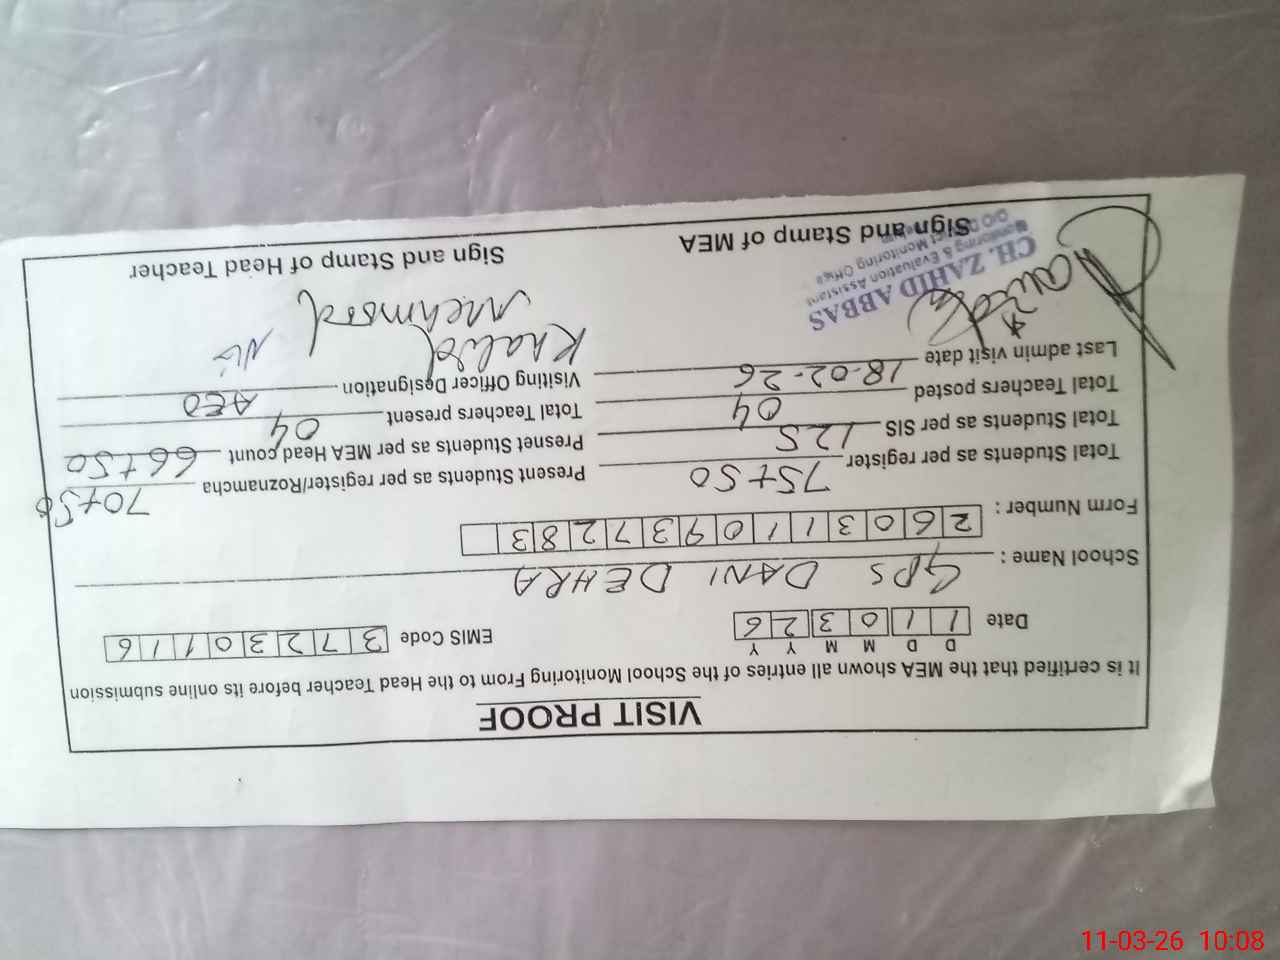 VISIT PROOF
It is certified that the MEA shown all entries of the School Monitoring From to the Head Teacher before its online submission
D D M M Y Y
Date 1 1 0 3 2 6 EMIS Code 3 7 2 3 0 1 1 6
School Name : GPS DANI DEHRA
Form Number : 2 6 0 3 1 1 0 9 3 7 2 8 3
Total Students as per register 75+50 Present Students as per register/Roznamcha 70+50
Total Students as per SIS 125 Presnet Students as per MEA Head count 66+50
Total Teachers posted 04 Total Teachers present 04
Last admin visit date 18-02-26 Visiting Officer Designation AEO
Khalid
Mehmood
CH. ZAHID ABBAS
Monitoring & Evaluation Assistant
Sign and Stamp of MEA Sign and Stamp of Head Teacher
11-03-26 10:08